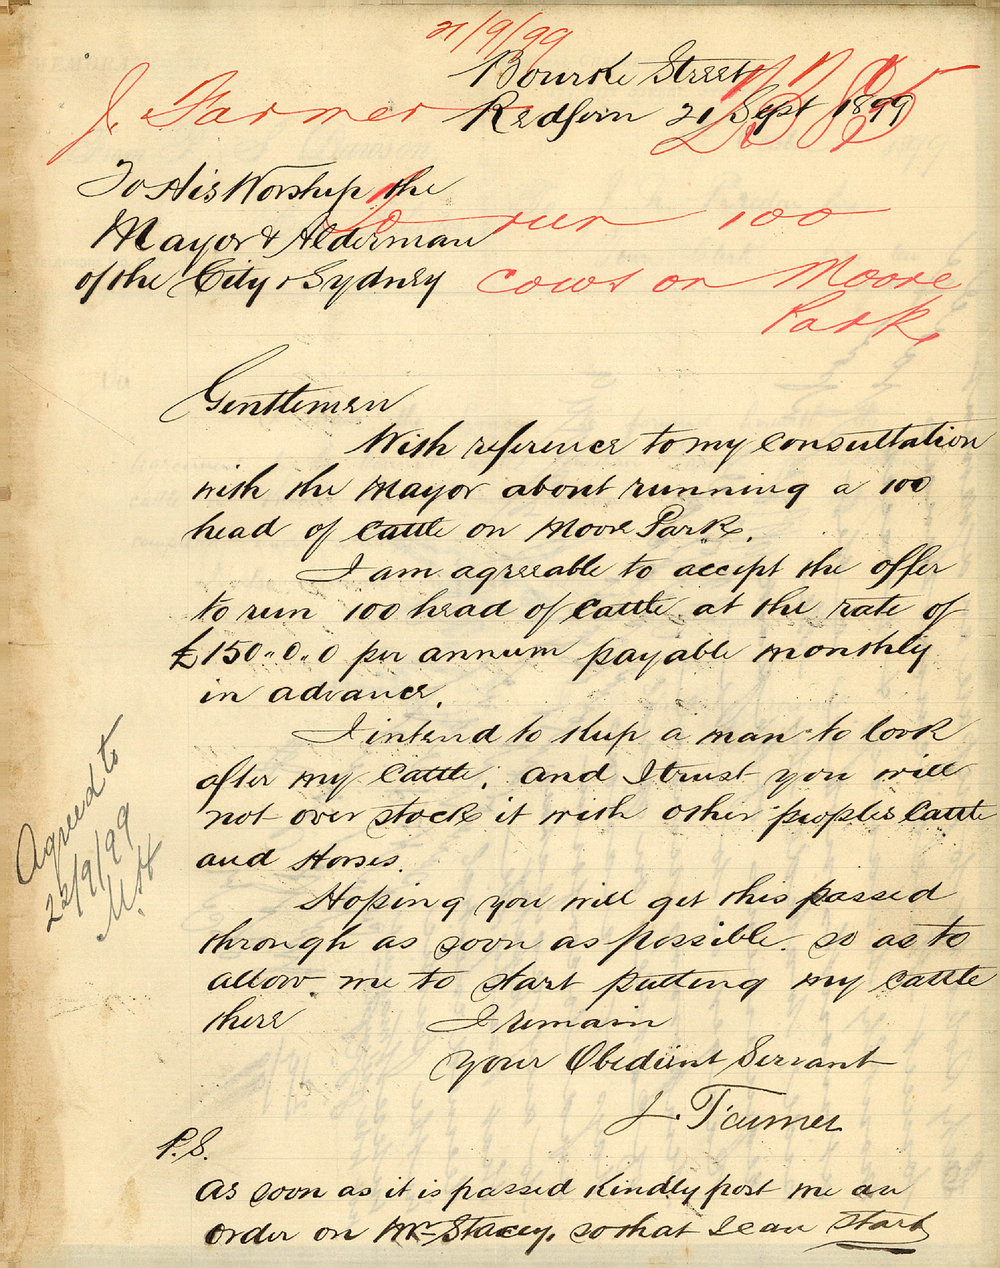 21/9/99
Bourke Street
J. Farmer
Redfern 21 Sept 1899
To His Worship the
Mayor & Alderman
of the City Sydney
To run 100
cows on Moore
Park.
Gentlemen
With reference to my consultation
with the Mayor about running a 100
head of cattle on Moore Park.
I am agreeable to accept the offer
to run 100 head of cattle at the rate of
£150..0..0 per annum payable monthly
in advance.
I intend to keep a man to look
after my cattle, and I trust you will
not over stock it with other peoples cattle
and Horses.
Hoping you will get this passed
through as soon as possible. so as to
allow me to start putting my cattle
there I remain
your Obedient Servant
J. Farmer
P.S.
As soon as it is passed kindly post me an
order on Mr Stacey, so that I can start
Agreed to
22/9/99